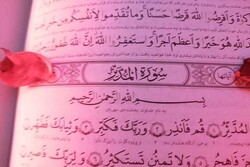 وَأَقْرِضُوا اللَّهَ قَرْضًا حَسَنًا وَمَا تُقَدِّمُوا لِأَنْفُسِكُمْ مِنْ خَيْرٍ
هُوَ خَيْرًا وَأَعْظَمَ أَجْرًا وَاسْتَغْفِرُوا اللَّهَ إِنَّ اللَّهَ غَفُورٌ
سُورَةُ الْمُدَّثِّرِ
بِسْمِ اللَّهِ الرَّحْمَنِ الرَّحِيمِ
الْمُدَّثِّرُ قُمْ فَأَنْذِرْ وَرَبَّكَ فَكَبِّرْ وَثِيَابَكَ فَطَهِّرْ
وَلَا تَمْنُنْ تَسْتَكْثِرُ وَلِرَبِّكَ